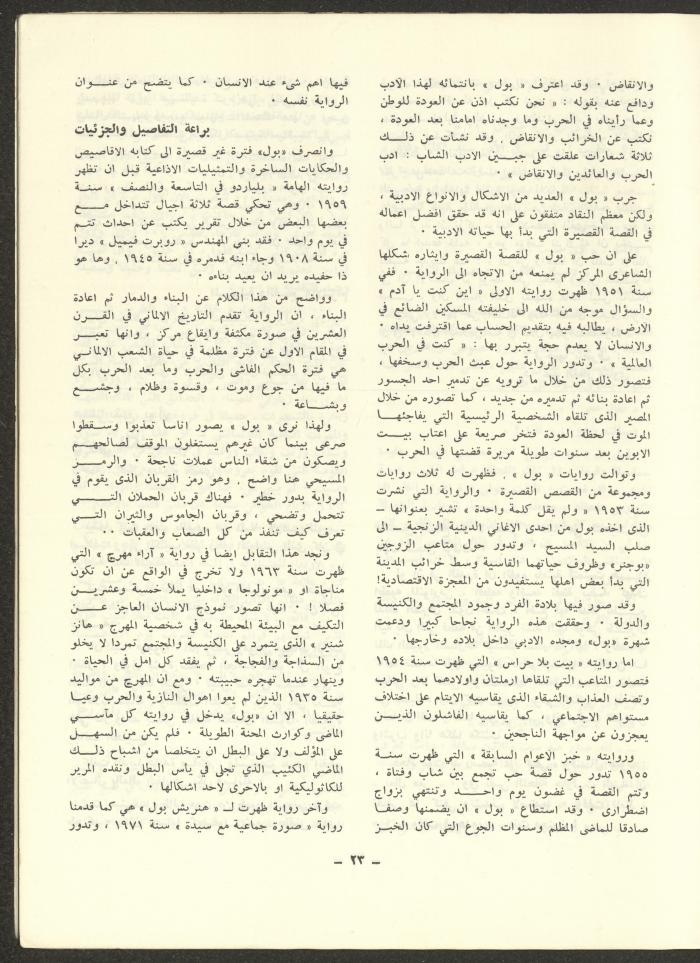 والانقاض · وقد اعترف « بول » بانتمائه لهذا الادب
ودافع عنه بقوله : « نحن نكتب اذن عن العودة للوطن
وعما رأيناه في الحرب وما وجدناه امامنا بعد العودة ،
نكتب عن الخرائب والانقاض . وقد نشأت عن ذلك
ثلاثة شعارات علقت على جبين الادب الشاب : ادب
الحرب والعائدين والانقاض » ·
جرب « بول » العديد من الاشكال والانواع الادبية ،
ولكن معظم النقاد متفقون على انه قد حقق افضل اعماله
في القصة القصيرة التي بدأ بها حياته الادبية ·
على ان حب « بول » للقصة القصيرة وايثاره شكلها
الشاعرى المركز لم يمنعه من الاتجاه الى الرواية · ففي
سنة ١٩٥١ ظهرت روايته الاولى « اين كنت يا آدم »
والسؤال موجه من الله الى خليفته المسكين الضائع في
الارض ، يطالبه فيه بتقديم الحساب عما اقترفت يداه ·
والانسان لا يعدم حجة يتبرر بها : « كنت في الحرب
العالمية » · وتدور الرواية حول عبث الحرب وسخفها ،
فتصور ذلك من خلال ما ترويه عن تدمير احد الجسور
ثم اعادة بنائه ثم تدميره من جديد ، كما تصوره من خلال
المصير الذى تلقاه الشخصية الرئيسية التي يفاجئها
الموت في لحظة العودة فتخر صريعة على اعتاب بيت
الابوين بعد سنوات طويلة مريرة قضتها في الحرب ·
وتوالت روايات « بول » . فظهرت له ثلاث روايات
ومجموعة من القصص القصيرة · والرواية التي نشرت
سنة ١٩٥٣ « ولم يقل كلمة واحدة » تشير بعنوانها –
الذى اخذه بول من احدى الاغاني الدينية الزنجية – الى
صلب السيد المسيح ، وتدور حول متاعب الزوجين
«بوجنر» وظروف حياتهما القاسية وسط خرائب المدينة
التي بدأ بعض اهلها يستفيدون من المعجزة الاقتصادية!
وقد صور فيها بلادة الفرد وجمود المجتمع والكنيسة
والدولة · وحققت هذه الرواية نجاحا كبيرا ودعمت
شهرة «بول» ومجده الادبي داخل بلاده وخارجها ·
اما روايته « بيت بلا حراس » التي ظهرت سنة ١٩٥٤
فتصور المتاعب التي تلقاها ارملتان واولادهما بعد الحرب
وتصف العذاب والشقاء الذى يقاسيه الايتام على اختلاف
مستواهم الاجتماعي ، كما يقاسيه الفاشلون الذين
يعجزون عن مواجهة الناجحين ·
وروايته « خبز الاعوام السابقة » التي ظهرت سنة
١٩٥٥ تدور حول قصة حب تجمع بين شاب وفتاة ،
وتتم القصة في غضون يوم واحد وتنتهي بزواج
اضطرارى · وقد استطاع « بول » ان يضمنها وصفا
صادقا للماضى المظلم وسنوات الجوع التي كان الخبز
فيها اهم شىء عند الانسان · كما يتضح من عنوان
الرواية نفسه ·
براعة التفاصيل والجزئيات
وانصرف «بول» فترة غير قصيرة الى كتابه الاقاصيص
والحكايات الساخرة والتمثيليات الاذاعية قبل ان تظهر
روايته الهامة « بلياردو في التاسعة والنصف » سنة
١٩٥٩ · وهي تحكي قصة ثلاثة اجيال تتداخل مع
بعضها البعض من خلال تقرير يكتب عن احداث تتم
في يوم واحد · فقد بنى المهندس « روبرت فيميل » ديرا
في سنة ١٩٠٨ وجاء ابنه فدمره في سنة ١٩٤٥ . وها هو
ذا حفيده يريد ان يعيد بناءه ·
وواضح من هذا الكلام عن البناء والدمار ثم اعادة
البناء ، ان الرواية تقدم التاريخ الالماني في القرن
العشرين في صورة مكثفة وايقاع مركز ، وانها تعبر
في المقام الاول عن فترة مظلمة في حياة الشعب الالماني
هي فترة الحكم الفاشى والحرب وما بعد الحرب بكل
ما فيها من جوع وموت ، وقسوة وظلام ، وجشع
وبشاعة ·
ولهذا نرى « بول » يصور اناسا تعذبوا وسقطوا
صرعى بينما كان غيرهم يستغلون الموقف لصالحهم
ويصكون من شقاء الناس عملات ناجحة · والرمز
المسيحي هنا واضح . وهو رمز القربان الذى يقوم في
الرواية بدور خطير · فهناك قربان الحملان التي
تتحمل وتضحي ، وقربان الجاموس والثيران التي
تعرف كيف تنفذ من كل الصعاب والعقبات ··
ونجد هذا التقابل ايضا في رواية « آراء مهرج » التي
ظهرت سنة ١٩٦٣ ولا تخرج في الواقع عن ان تكون
مناجاة او « مونولوجا » داخليا يملأ خمسة وعشرين
فصلا ! · انها تصور نموذج الانسان العاجز عن
التكيف مع البيئة المحيطة به في شخصية المهرج « هانز
شنير » الذى يتمرد على الكنيسة والمجتمع تمردا لا يخلو
من السذاجة والفجاجة ، ثم يفقد كل امل في الحياة ·
وينهار عندما تهجره حبيبته · ومع ان المهرج من مواليد
سنة ١٩٣٥ الذين لم يعوا اهوال النازية والحرب وعيا
حقيقيا ، الا ان «بول» يدخل في روايته كل مآسي
الماضى وكوارث المحنة الطويلة · فلم يكن من السهل
على المؤلف ولا على البطل ان يتخلصا من اشباح ذلك
الماضي الكئيب الذي تجلى في يأس البطل ونقده المرير
للكاثوليكية او بالاحرى لاحد اشكالها ·
وآخر رواية ظهرت لـ « هنريش بول » هي كما قدمنا
رواية « صورة جماعية مع سيدة » سنة ١٩٧١ ، وتدور
– ٢٣ –